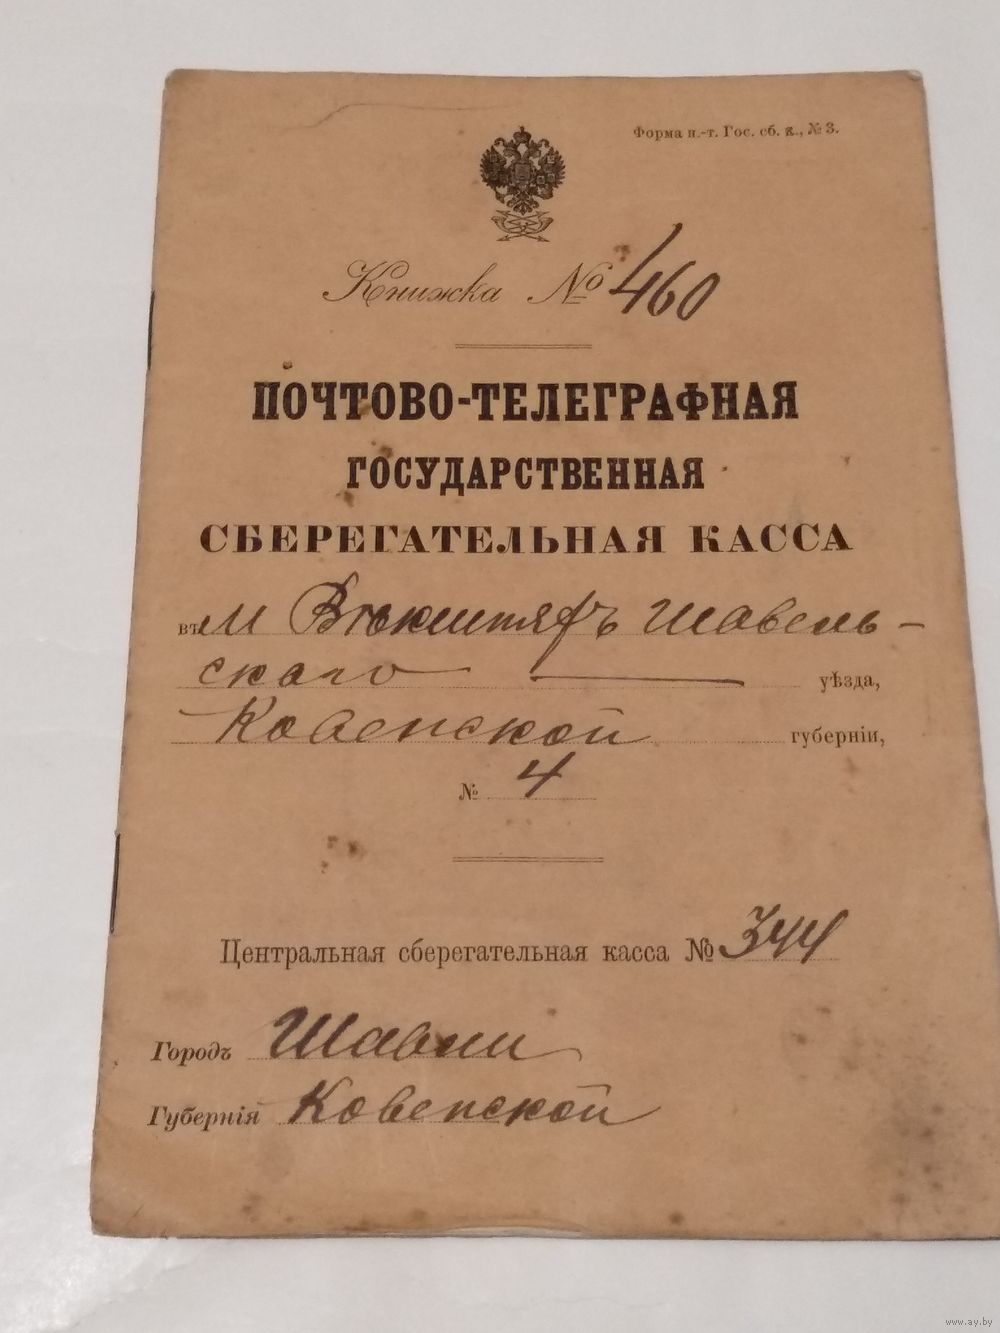 Форма п.-т. Гос. сб. к., № 3.
Книжка № 460
ПОЧТОВО-ТЕЛЕГРАФНАЯ
ГОСУДАРСТВЕННАЯ
СБЕРЕГАТЕЛЬНАЯ КАССА
въ м Шавель-
скаго уѣзда,
Ковенской губерніи,
№ 4
Центральная сберегательная касса № 344
Городъ Шавли
Губернія Ковенской
www.ay.by